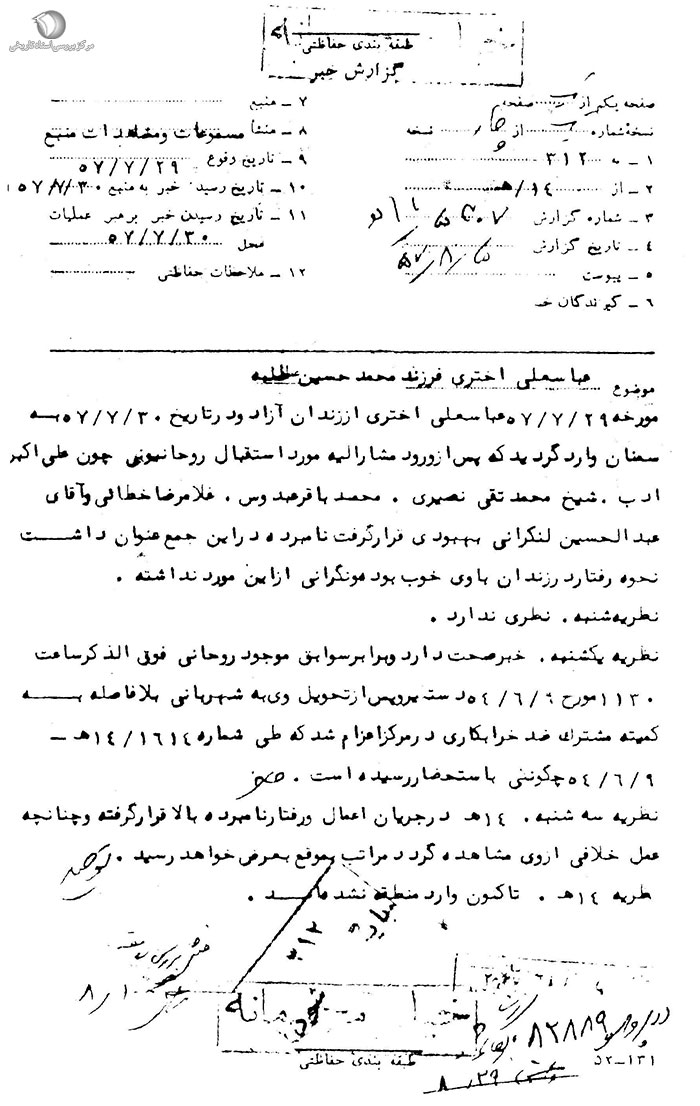 مرکز بررسی اسناد تاریخی
طبقه بندی حفاظتی
گزارش خبر
صفحه یکم از صفحه
نسخه شماره از نسخه
۱ ـ به ۳۱۲
۲ ـ از ۱۴/هـ
۳ ـ شماره گزارش
۴ ـ تاریخ گزارش ۵۷/۸/۵
۵ ـ پیوست
۶ ـ گیرندگان خـ
۷ ـ منبع
۸ ـ منشأ مسموعات و مشاهدات منبع
۹ ـ تاریخ وقوع ۵۷/۷/۲۹
۱۰ ـ تاریخ رسیدن خبر به منبع ۵۷/۷/۳۰
۱۱ ـ تاریخ رسیدن خبر برهبر عملیات
محل ۵۷/۷/۳۰
۱۲ ـ ملاحظات حفاظتی
موضوع عباسعلی اختری فرزند محمد حسین
مورخه ۵۷/۷/۲۹ عباسعلی اختری از زندان آزاد و در تاریخ ۵۷/۷/۳۰ بـه
سمنان وارد گردید که پس از ورود مشارالیه مورد استقبال روحانیونی چون علی اکبر
ادب . شیخ محمد تقی نصیری . محمد باقر عبدوس . غلامرضا خطائی وآقای
عبدالحسین لنکرانی بهبودی قرار گرفت نامبرده در این جمع عنوان داشـــت
نحوه رفتار در زندان باوی خوب بوده ونگرانی از این مورد نداشته .
نظریه شنبه . نظری ندارد .
نظریه یکشنبه . خبر صحت دارد وبرابر سوابق موجود روحانی فوق الذکر ساعت
۱۱۳۰ مورخ ۵۴/۶/۹ دستگیر و پس از تحویل وی به شهربانی بلافاصله بـــه
کمیته مشترک ضد خرابکاری در مرکز اعزام شد که طی شماره ۱۴/۱۶۱۴هـ ـ
۵۴/۶/۹ چگونگی باستحضار رسیده است .
نظریه سه شنبه . ۱۴هـ در جریان اعمال ورفتار نامبرده بالا قرار گرفته وچنانچه
عمل خلافی از وی مشاهده گردد مراتب بموقع بعرض خواهد رسید .
ظریه ۱۴هـ . تاکنون وارد منطقه نشده
۳۱۲
۸/۱
طبقه بندی حفاظتی
۸۲۸۸۹
۵۲-۱۳۱
۸/۲۹